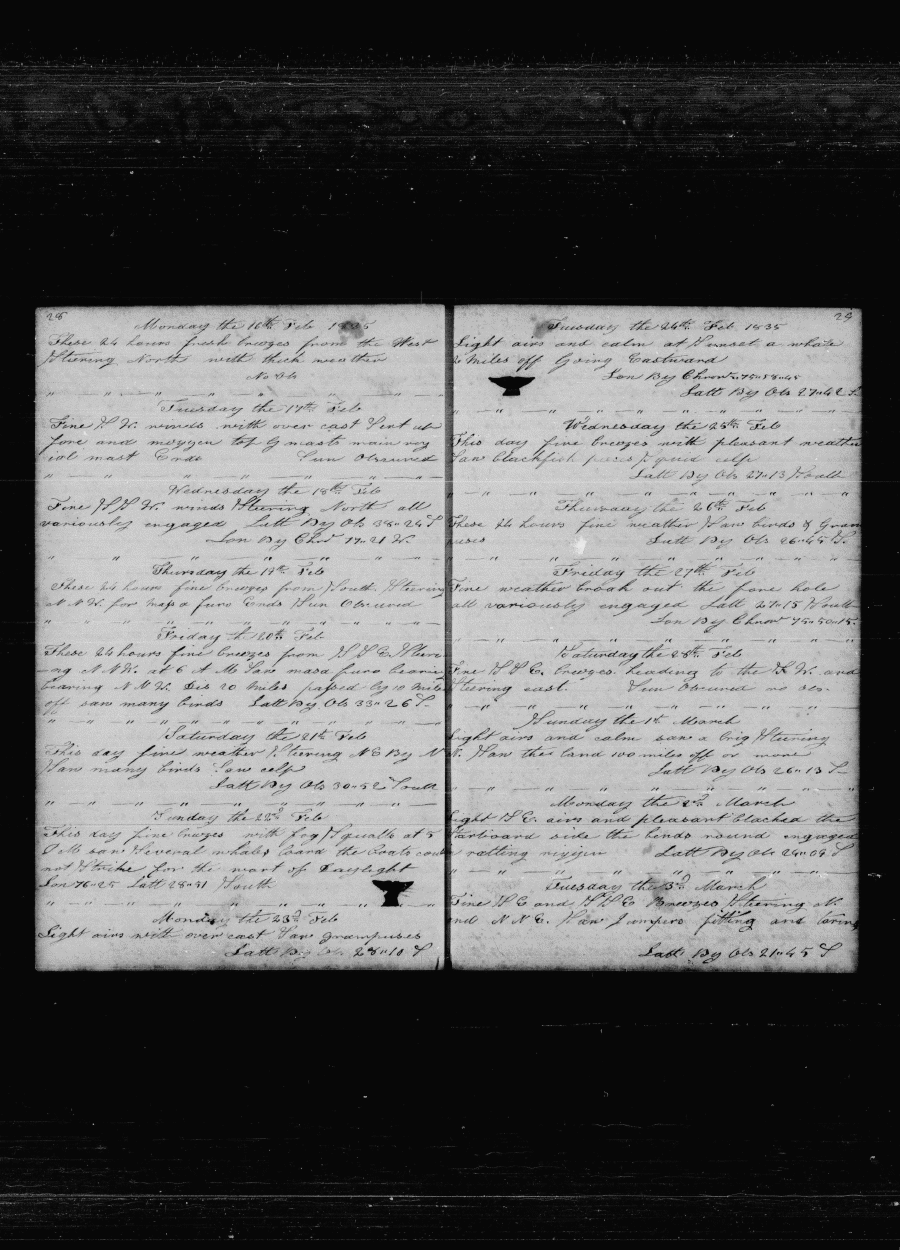 28
Monday the 16th Feb 1835
These 24 hours fresh breezes from the West
Steering North with thick weather
No Ob
Tuesday the 17th Feb
Fine S.W. winds with over cast Sent up
fore and mizzen top G masts main roy
ial mast Ends Sun Obscured
Wednesday the 18th Feb
Fine S S W. winds Steering North all
variously engaged Latt By Ob 38"24 S
Lon By Chro 79"21 W.
Thursday the 19th Feb
These 24 hours fine breezes from South Steering
N.N.W. for masa furo Ends Sun Obscured
Friday th 20th Feb
These 24 hours fine breezes from S S E Steeri
ng N.NW. at 6 A M Saw masa furo bearing
bearing N N W. Dis 20 miles passed by 10 miles
off saw many birds Latt By Ob 33"26 S
Saturday the 21th Feb
This day fine weather Steering NE By N
Saw many birds Saw celp
Latt By Ob 30"52 South
Sunday the 22th Feb
This day fine breezes with fog Squalls at 5
P M saw Several whales loard the boats could
not Strike for the want of Daylight
Lon 76-25 Latt 28"51 South
Monday the 23d Feb
Light airs with over cast Saw grampuses
Latt By Ob 28"10 S
29
Tuesday the 24th Feb 1835
Light airs and calm at Sunset a whale
2 miles off Going Eastward
Lon By Chrow 75"58"45
Latt By Ob 27"42 S.
Wednesday the 25th Feb
This day fine breezes with pleasant weather
Saw blackfish peces Squid celp
Latt By Ob 27"13 South
Thursday the 26th Feb
These 24 hours fine weather Saw birds & Gram
puses Latt By Ob 26"45 S.
Friday the 27th Feb
Fine weather broak out the fore hole
all variously engaged Latt 27"15 South
Lon By Chrow 75"50"15
Saturday the 28th Feb
Fine S S E. breezes heading to the S.W. and
Steering east. Sun Obscured no obs
Sunday the 1st March
Light airs and calm saw a brig Steering
N. Saw the land 100 miles off or more
Latt By Ob 26"13 S
Monday the 2d March
Light S E. airs and pleasant blacked the
Starboard side the bends round engaged
in ratling riggin Latt By Ob 24"09 S
Tuesday the 3d March
Fine S E and S S E Breezes Steering N
and N N E. Saw Jumpers fitting and taring
Latt By Ob 21"45 S